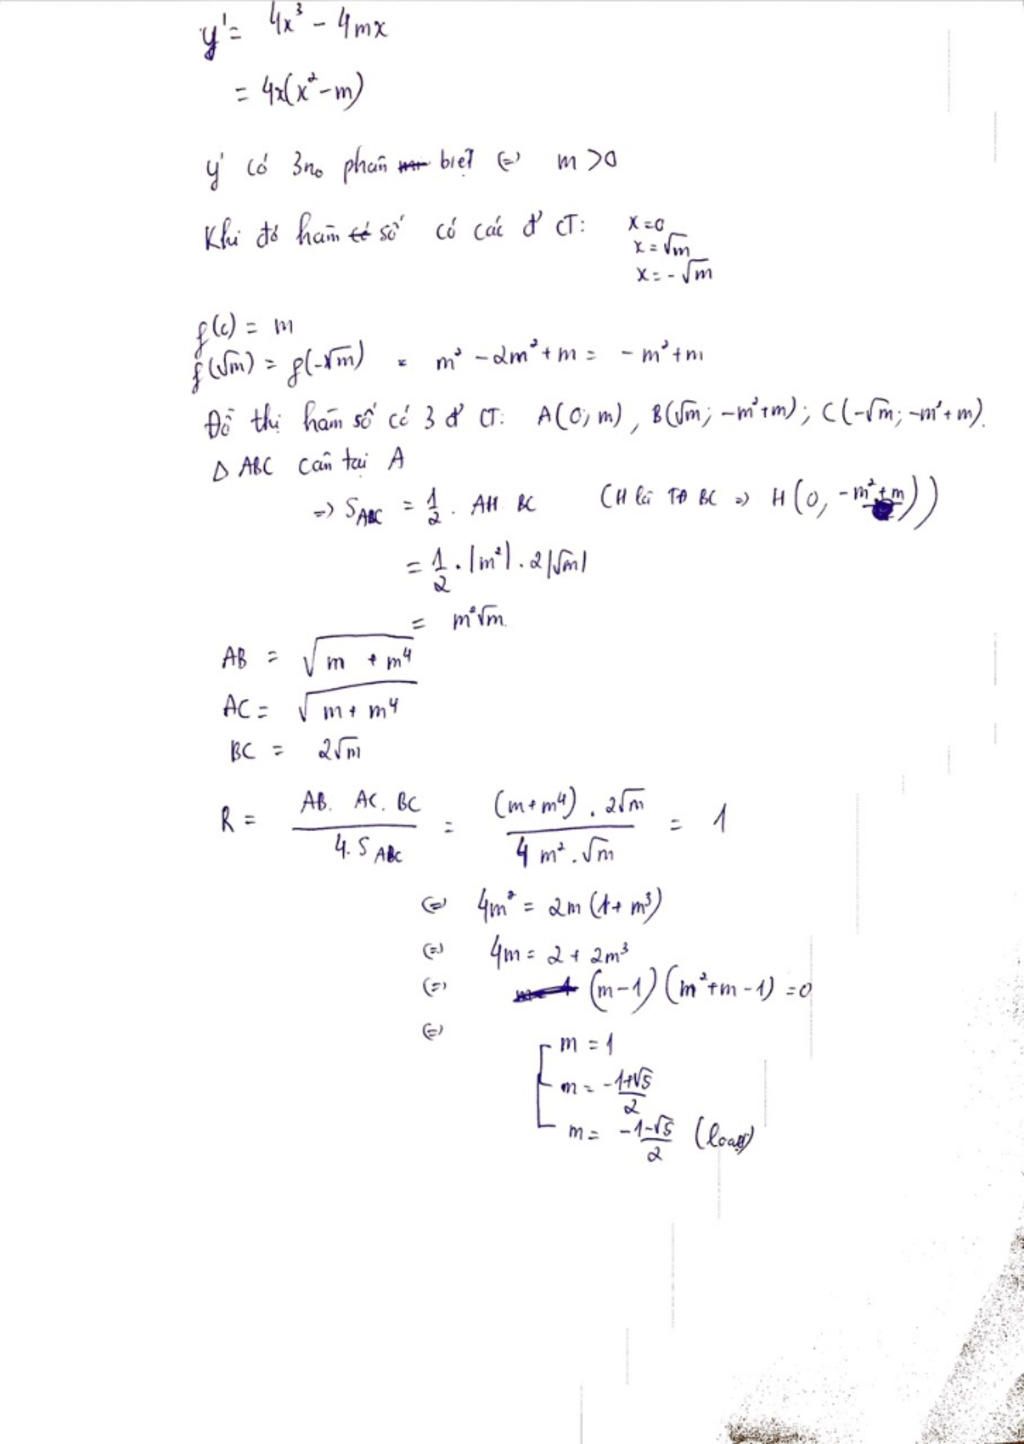 y' = 4x³ - 4mx
= 4x(x² - m)
y' có 3 n₀ phân biệt (=) m > 0
Khi đó hàm số có các đ' CT: x = 0
x = √m
x = -√m
f(c) = m
f(√m) = f(-√m) = m² - 2m² + m = -m² + m
Đồ thị hàm số có 3 đ' CT: A(0; m), B(√m; -m²+m); C(-√m; -m²+m).
Δ ABC cân tại A
=> S_ABC = 1/2 . AH BC (H là TĐ BC => H(0, -m²+m))
= 1/2 . |m²| . 2|√m|
= m²√m.
AB = √(m + m⁴)
AC = √(m + m⁴)
BC = 2√m
R = (AB. AC. BC)/(4. S_ABC) = ((m+m⁴) . 2√m)/(4 m² . √m) = 1
(=) 4m² = 2m (1 + m³)
(=) 4m = 2 + 2m³
(=) (m-1) (m²+m-1) = 0
(=)
m = 1
m = (-1+√5)/2
m = (-1-√5)/2 (loại)